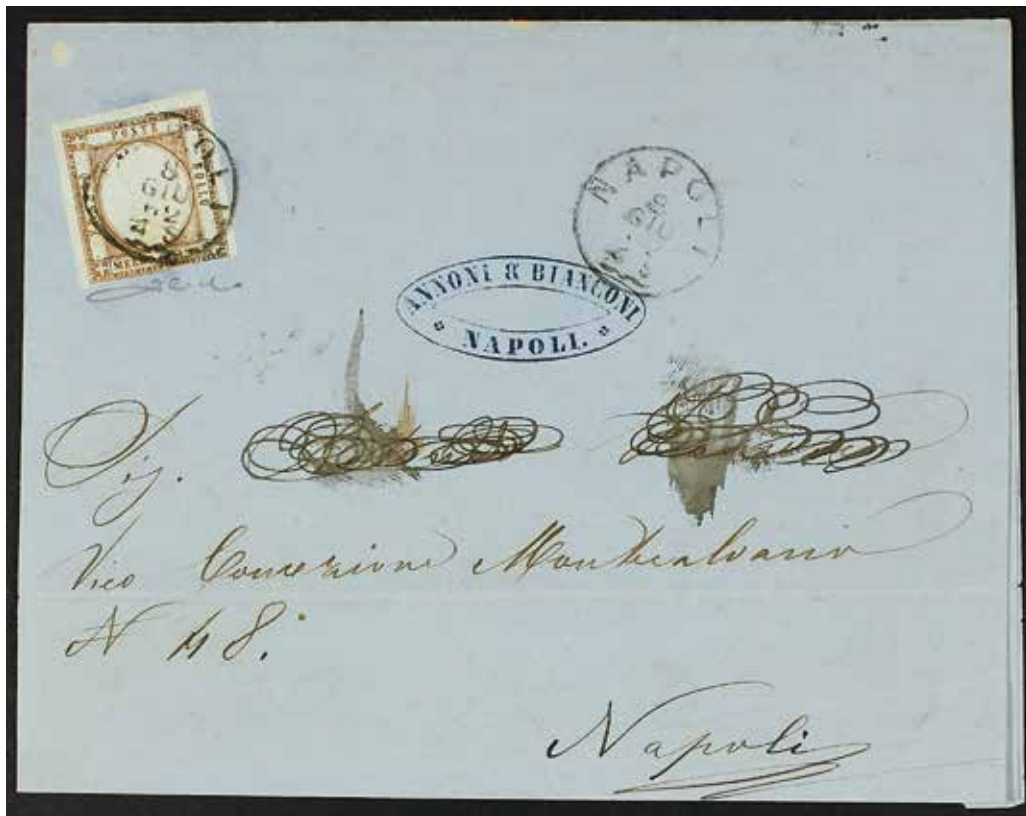 POSTE
BOLLO
8
GIU
NAPOLI
GIU
ANNONI & BIANCONI
NAPOLI.
Sig.
Vico Concezione Montecalvario
N 48.
Napoli